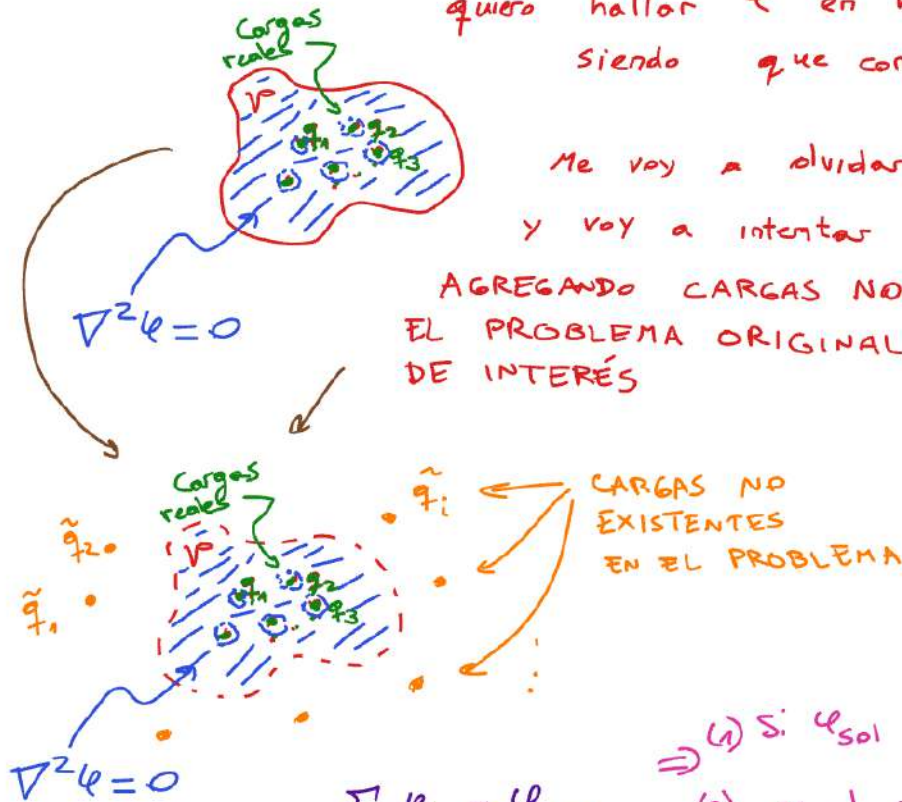 quiero hallar φ en
Cargas
reales
siendo que
V
q₁
q₂
q₃
Me voy a olvidar
y voy a intentar
AGREGANDO CARGAS NO
∇²φ = 0
EL PROBLEMA ORIGINAL
DE INTERÉS
Cargas
reales
q̃ᵢ
CARGAS NO
EXISTENTES
EN EL PROBLEMA
q̃₂
V
q₁
q₂
q₃
q̃₁
∇²φ = 0
⇒ (1) Si φsol